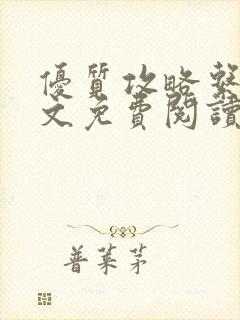 優質攻略繫
文免費閱讀
普萊茅